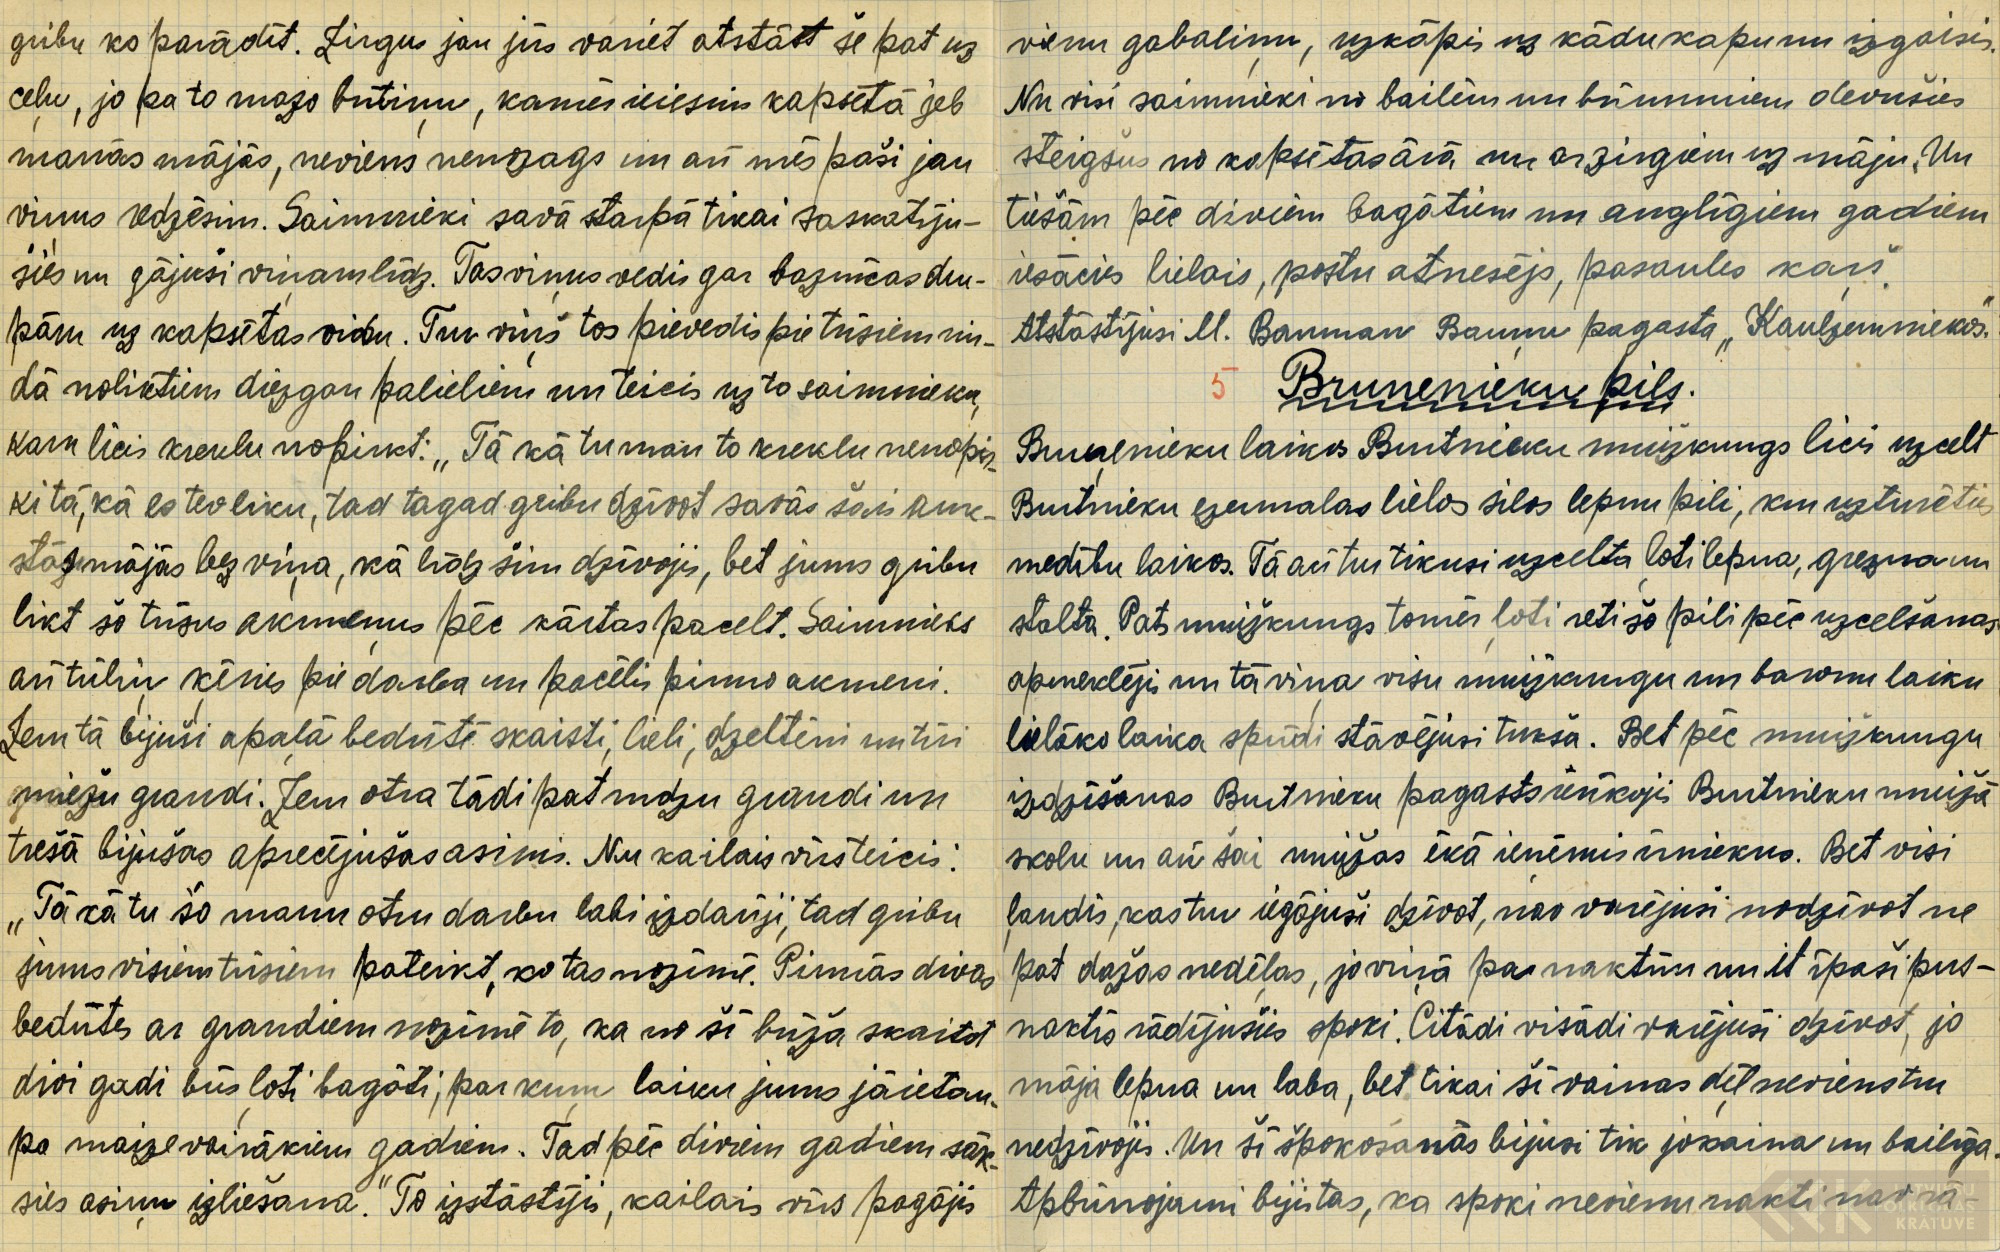 gribu ko parādīt. Zirgus jau jūs variet atstāst še pat uz
ceļu, jo pa to mazo brītiņu, kamēr ieiesim kapsētā jeb
manās mājās, neviens nenozags un arī mēs paši jau
viņus redzēsim. Saimnieki savā starpā tikai saskatīju-
šies un gājuši viņam līdz. Tas viņus vedis gar baznīcas dru-
pām uz kapsētas vidu. Tur viņš tos pievedis pie trīsiem rin-
dā noliktiem diezgan palieliem un teicis uz to saimnieku,
karu licis kreklu nopirkt: „Tā kā tu man to kreklu nenopir-
ki tā, kā es tev liku, tad tagad gribu dzīvot savās šais auk-
stās mājās bez viņa, kā līdz šim dzīvojis, bet jums gribu
likt šo trīsus akmeņus pēc kārtas pacelt. Saimnieks
arī tūliņ ķēries pie darba un pacēlis pirmo akmeni.
Zem tā bijuši apaļā bedrītē skaisti, lieli, dzelteni un tīri
miežu graudi. Zem otra tādi pat rudzu graudi un
trešā bijušas aprecējušas asinis. Nu kailais vīrs teicis:
„Tā kā tu šo manu otru darbu labi izdarīji, tad gribu
jums visiem trīsiem pateikt, ko tas nozīmē. Pirmās divas
bedrītes ar graudiem nozīmē to, ka no šī brīža skaitot
divi gadi būs ļoti bagāti, par kuŗu laiku jums jāietau-
pa maize vairākiem gadiem. Tad pēc diviem gadiem sāk-
sies asiņu izliešana." To izstāstījis, kailais vīrs pagājis
vienu gabaliņu, uzkāpis uz kādu kapu un izgaisis.
Nu visi saimnieki no bailēm un brīnumiem devušies
steigšus no kapsētas ārā un ar zirgiem uz māju. Un
tiešām pēc diviem bagātiem un auglīgiem gadiem
iesācies lielais, postu atnesējs, pasaules kaŗš.
Atstāstījusi M. Bauman Bauņu pagasta „Kaulzemniekos".
5 Bruņenieku pils.
Bruņenieku laikos Burtnieku muižkungs licis uzcelt
Burtnieku ezermalas lielos silos lepnu pili, kur uzturēties
medību laikos. Tā arī tur tikusi uzcelta ļoti lepna, grezna un
stalta. Pats muižkungs tomēr ļoti reti šo pili pēc uzcelšanas
apmeklējis un tā viņa visu muižkungu un baronu laiku
lielāko laika sprīdi stāvējusi tukša. Bet pēc muižkungu
izdzīšanas Burtnieku pagasts ierīkojis Burtnieku muižā
skolu un arī šai muižas ēkā ieņēmis īrniekus. Bet visi
ļaudis, kas tur iegājuši dzīvot, nav varējuši nodzīvot ne
pat dažas nedēļas, jo viņā pa naktīm un it īpaši pus-
naktīs rādījušies spoki. Citādi visādi varējuši dzīvot, jo
māja lepna un laba, bet tikai šī vainas dēļ neviens tur
nedzīvojis. Un šī spokošanās bijusi tik jokaina un bailīga.
Apbrīnojami bijis tas, ka spoki nevienu nakti nav rā-
KRĀTUVE